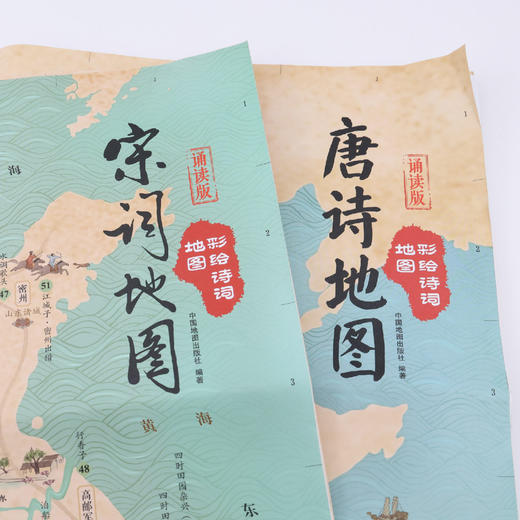 宋词地图
诵读版
彩绘诗词
地图
中国地图出版社 编著
海
密州
山东诸城
47
51
江城子·密州出猎
黄海
行香子
48
高邮军
四时田园杂兴
东
1
2
3
唐诗地图
诵读版
彩绘诗词
地图
中国地图出版社 编著
1
2
3